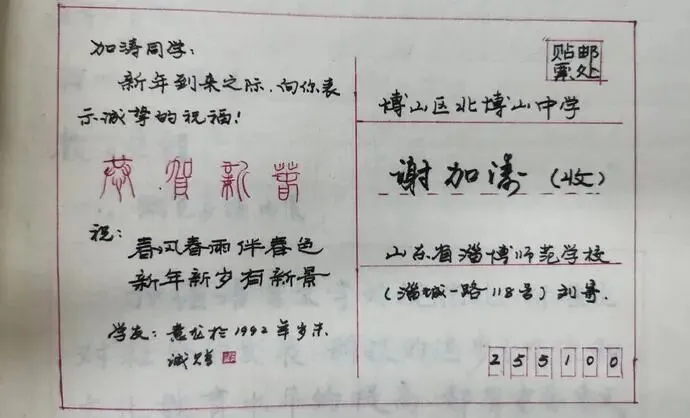 加涛同学:
新年到来之际,向你表
示诚挚的祝福!
恭贺新春
祝:
春风春雨伴春色
新年新岁有新景
学友: 于1992年岁末
诚贺
贴邮
票处
博山区北博山中学
谢加涛 (收)
山东省淄博师范学校
(淄城一路118号)刘寄.
255100